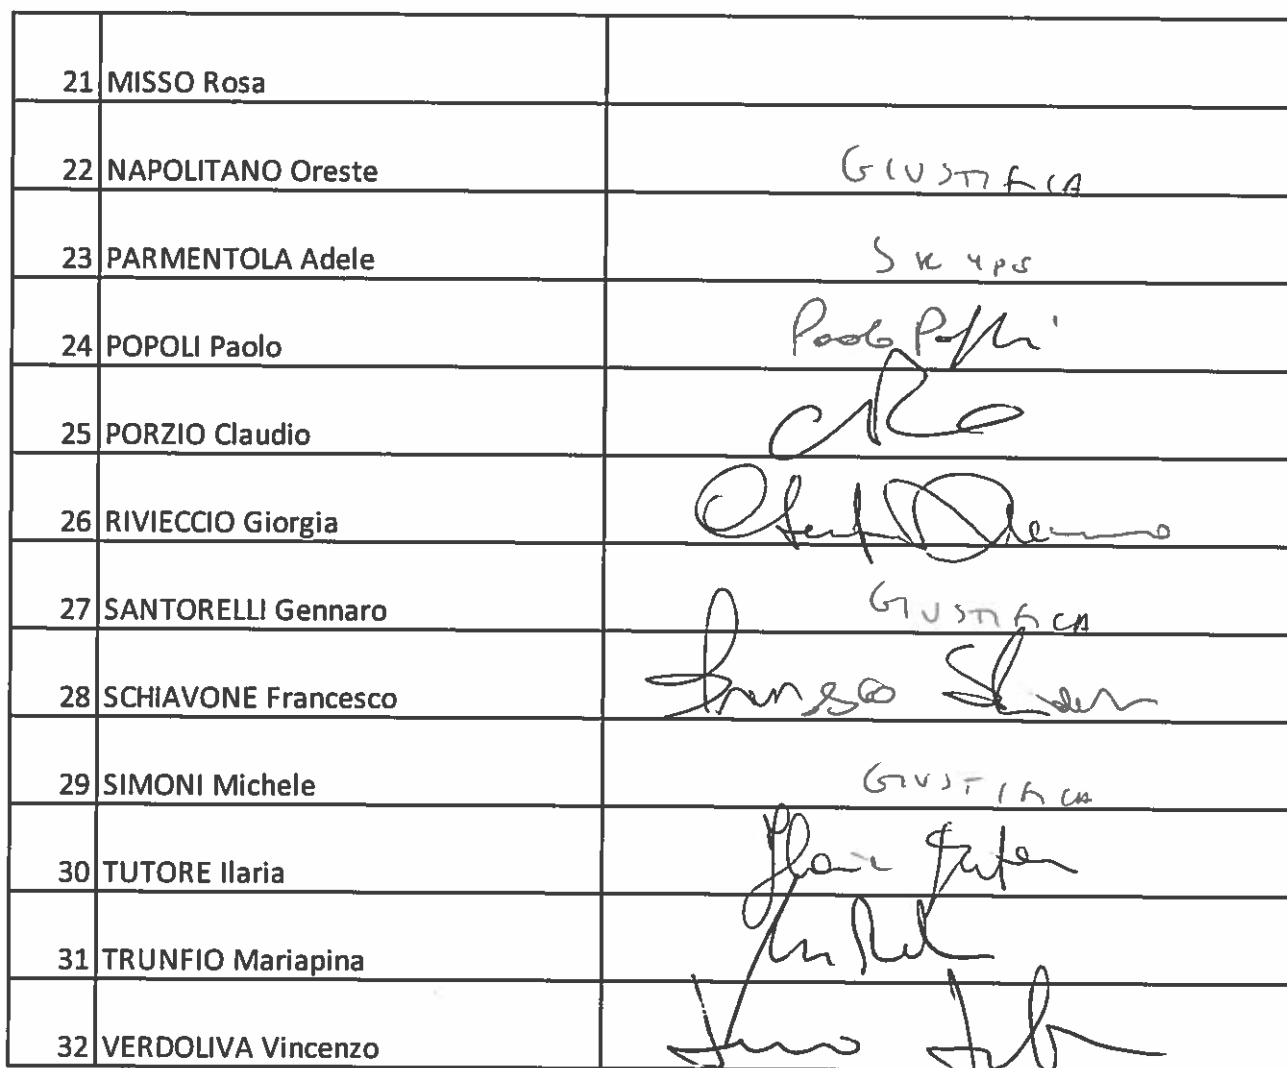 21 MISSO Rosa
22 NAPOLITANO Oreste GIUSTIFICA
23 PARMENTOLA Adele SKYPE
24 POPOLI Paolo Paolo Popoli
25 PORZIO Claudio
26 RIVIECCIO Giorgia
27 SANTORELLI Gennaro GIUSTIFICA
28 SCHIAVONE Francesco Francesco
29 SIMONI Michele GIUSTIFICA
30 TUTORE Ilaria Ilaria Tutore
31 TRUNFIO Mariapina
32 VERDOLIVA Vincenzo